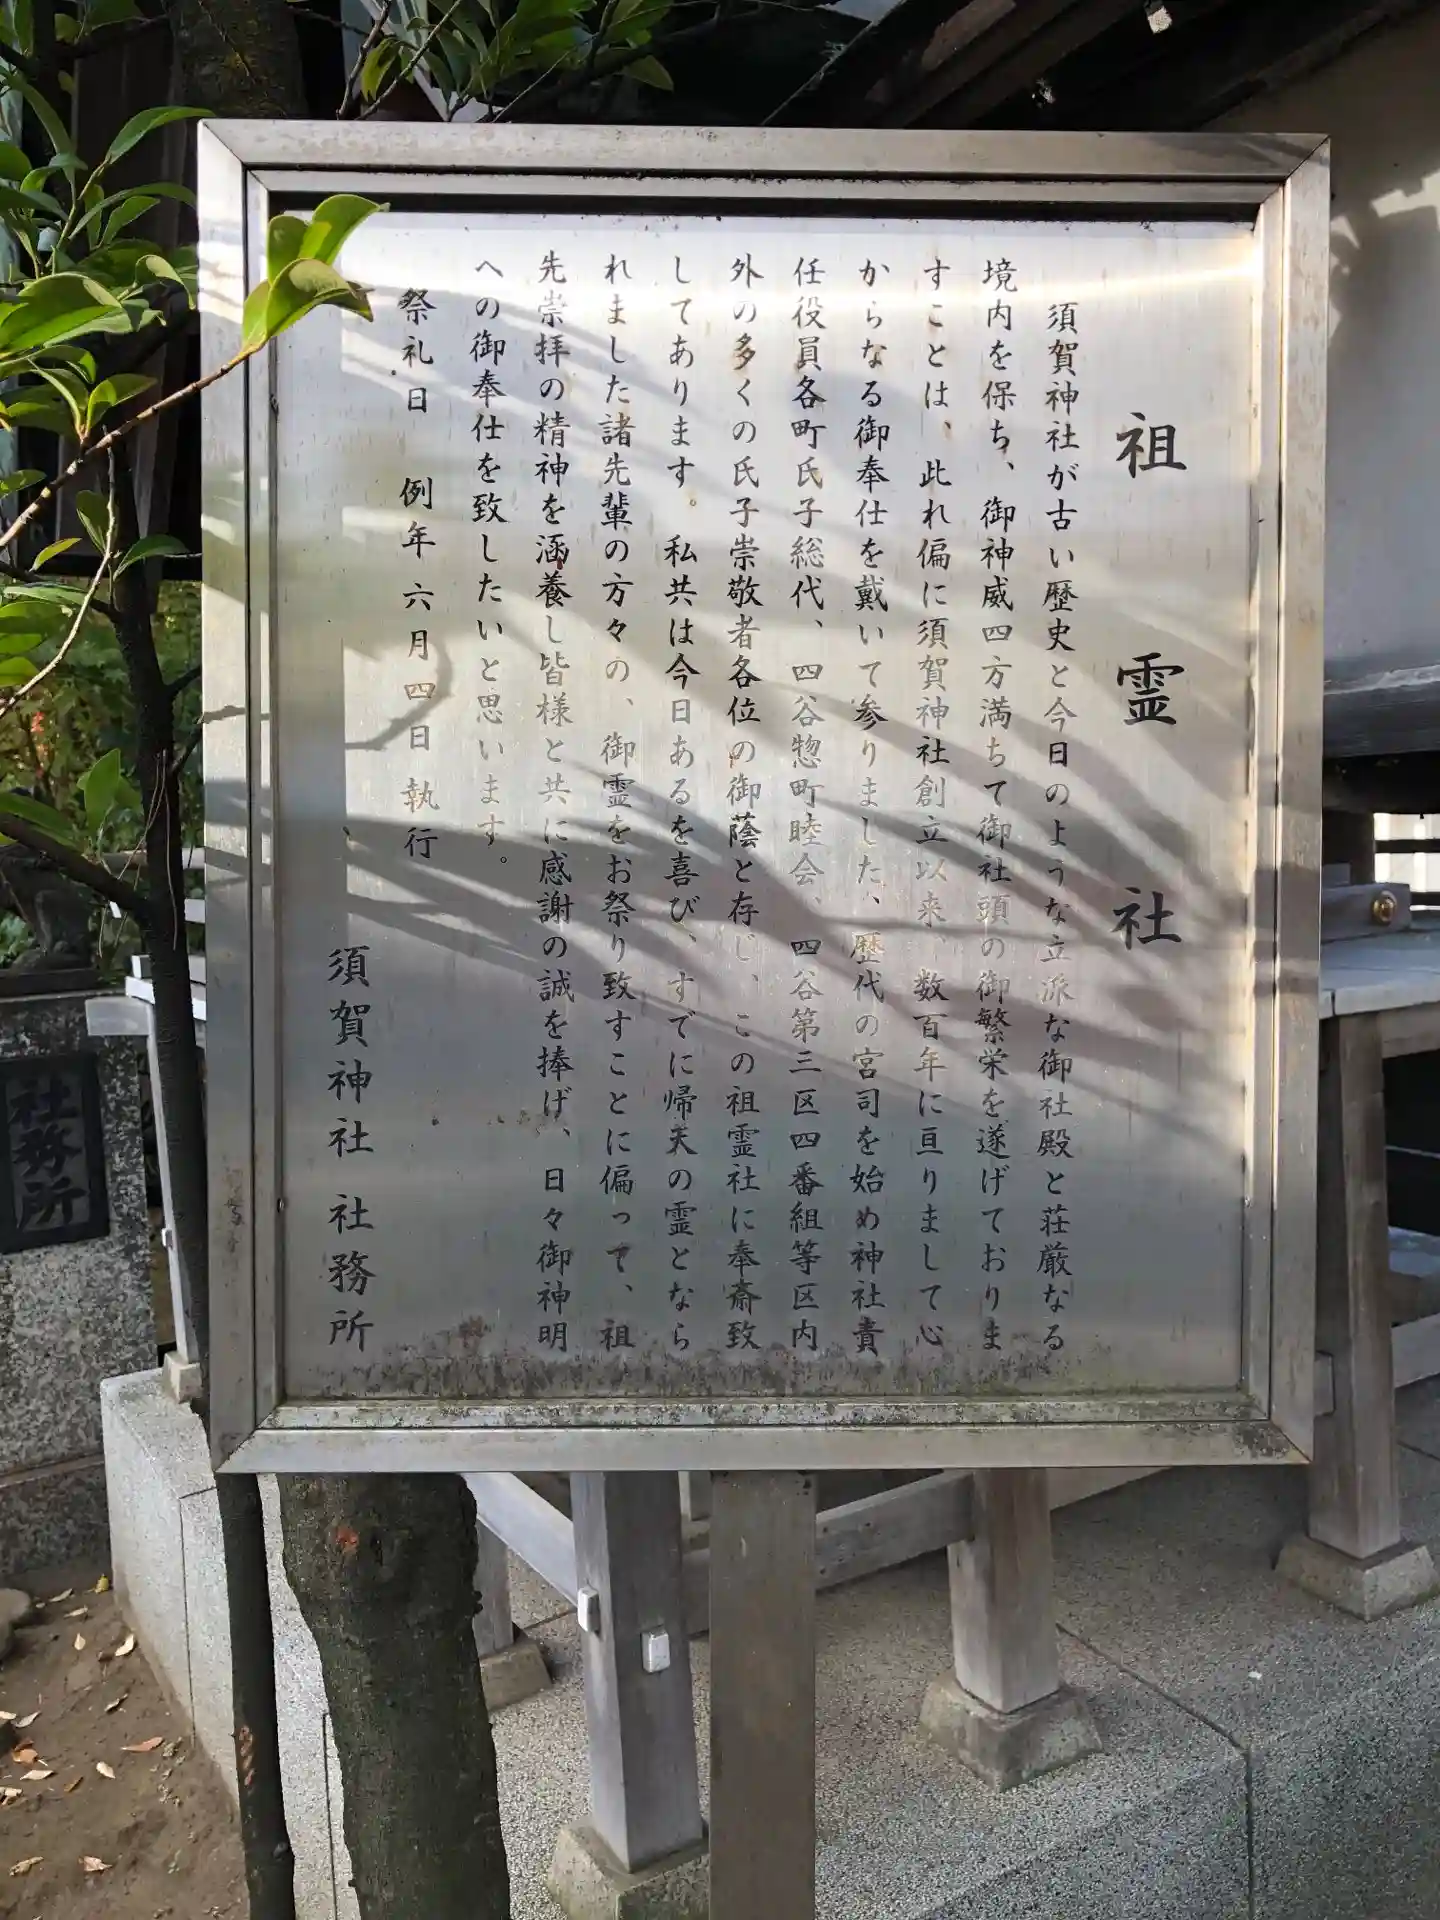 祖霊社
須賀神社が古い歴史と今日のような立派な御社殿と荘厳なる
境内を保ち、御神威四方満ちて御社頭の御繁栄を遂げておりま
すことは、此れ偏に須賀神社創立以来、数百年に亘りまして心
からなる御奉仕を戴いて参りました、歴代の宮司を始め神社責
任役員各町氏子総代、四谷惣町睦会、四谷第三区四番組等区内
外の多くの氏子崇敬者各位の御蔭と存じ、この祖霊社に奉斎致
してあります。私共は今日あるを喜び、すでに帰天の霊となら
れました諸先輩の方々の、御霊をお祭り致すことに偏って、祖
先崇拝の精神を涵養し皆様と共に感謝の誠を捧げ、日々御神明
への御奉仕を致したいと思います。
祭礼日 例年六月四日執行
須賀神社 社務所
社務所